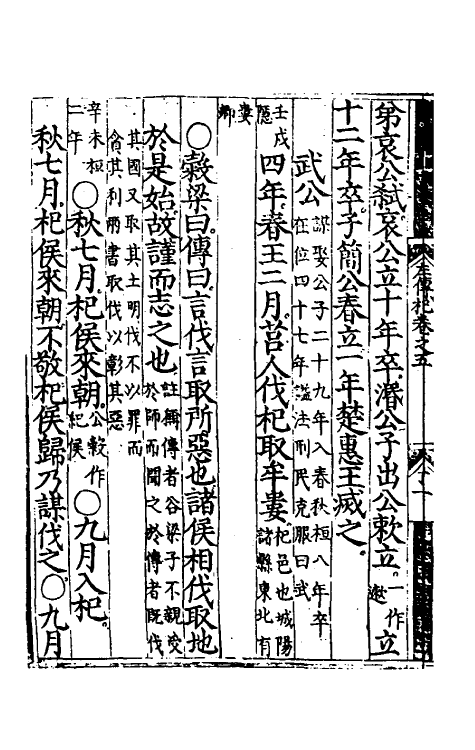 左傳杞卷之五
弟哀公弑哀公立十年卒湣公子出公敕立一作遬立
十二年卒子簡公春立一年楚惠王滅之
武公謀娶公子二十九年入春秋桓八年卒在位四十七年諡法刑民克服曰武
壬戌隱四年春王二月莒人伐杞取牟婁杞邑也城陽諸縣東北有
婁鄉
〇穀梁曰傳曰言伐言取所惡也諸侯相伐取地
於是始故謹而志之也註稱傳者谷梁子不親受於師而聞之於傳者既伐
其國又取其土明伐不以罪而貪其利兩書取伐以彰其惡
辛未桓二年〇秋七月杞侯來朝公穀作紀侯〇九月入杞
秋七月杞侯來朝不敬杞侯歸乃謀伐之〇九月